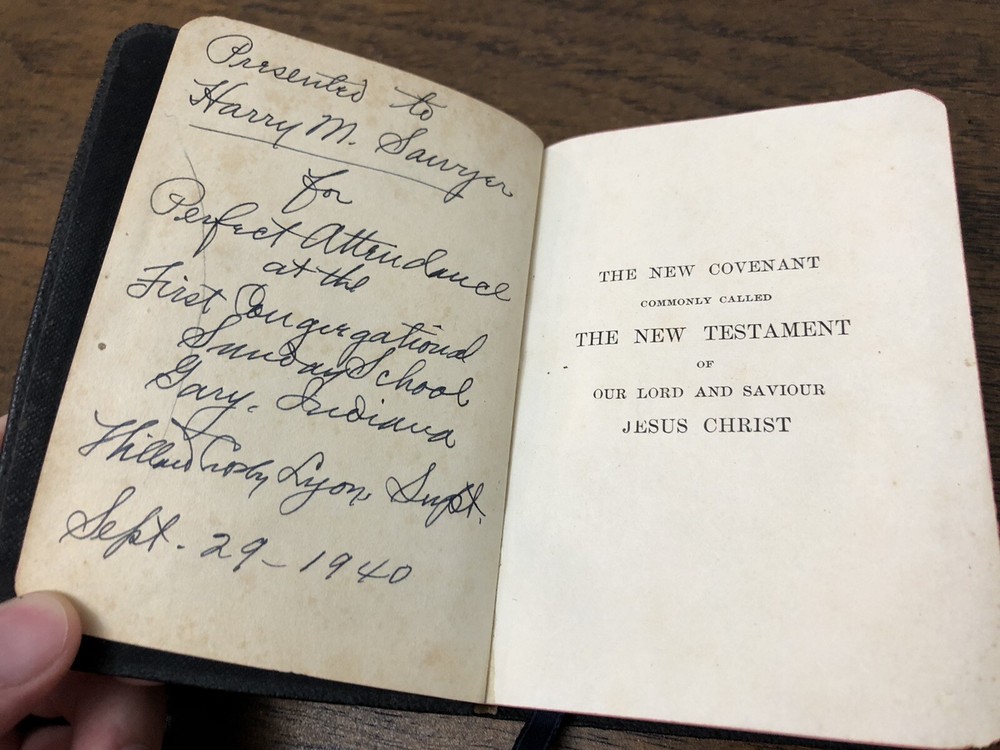 Presented to
Harry M. Sawyer
for
Perfect Attendance
at the
First Congregational
Sunday School
Gary, Indiana
Crosby Lyon, Supt.
Sept. 29 - 1940
THE NEW COVENANT
COMMONLY CALLED
THE NEW TESTAMENT
OF
OUR LORD AND SAVIOUR
JESUS CHRIST